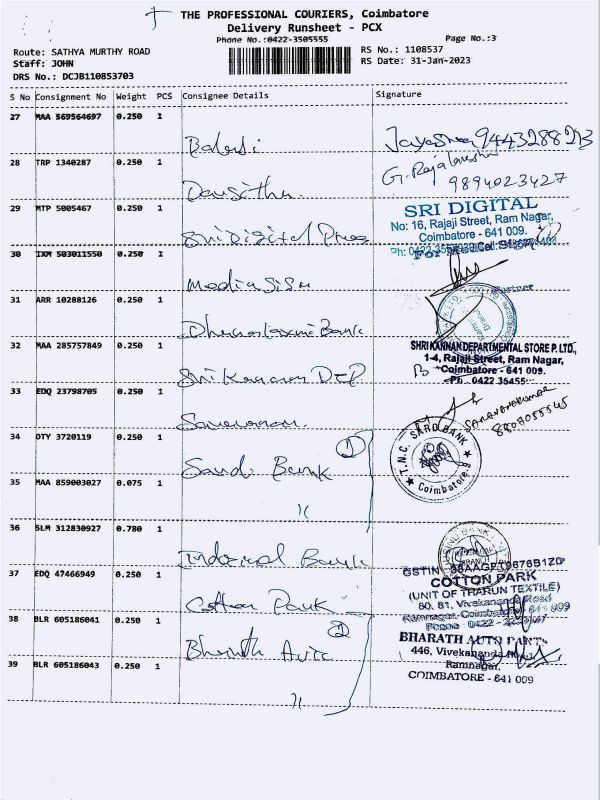 THE PROFESSIONAL COURIERS, Coimbatore
Delivery Runsheet - PCX
Phone No.:0422-3505555
Page No.:3
Route: SATHYA MURTHY ROAD
Staff: JOHN
DRS No.: DCJB110853703
RS No.: 1108537
RS Date: 31-Jan-2023
S No Consignment No Weight PCS Consignee Details Signature
27 MAA 569564697 0.250 1
9443288213
28 TRP 1340287 0.250 1
G. Rajalakshmi
9894023427
29 MTP 5005467 0.250 1
Sri Digital Press
SRI DIGITAL
No: 16, Rajaji Street, Ram Nagar,
Coimbatore - 641 009.
30 IXM 503011550 0.250 1
Media Sisu
31 ARR 10288126 0.250 1
Dhanalaxmi Bank
32 MAA 285757849 0.250 1
Sri Kannan Dep
SHRI KANNAN DEPARTMENTAL STORE P. LTD.,
1-4, Rajaji Street, Ram Nagar,
Coimbatore - 641 009.
Ph 0422 35455
33 EDQ 23798705 0.250 1
Saravanan
34 OTY 3720119 0.250 1
Bank
1
T.N.C. SARO BANK
Coimbatore-9
35 MAA 859003027 0.075 1
"
36 SLM 312830927 0.780 1
Bank
37 EDQ 47466949 0.250 1
Cotton Park
COTTON PARK
(UNIT OF THARUN TEXTILE)
60, 81, Vivekananda Road
Ramnagar, Coimbatore 641 009
Phone 0422 -
38 BLR 605186041 0.250 1
Bharath Auto
2
BHARATH AUTO PARTS
446, Vivekananda Road,
Ramnagar,
COIMBATORE - 641 009
39 BLR 605186043 0.250 1
"